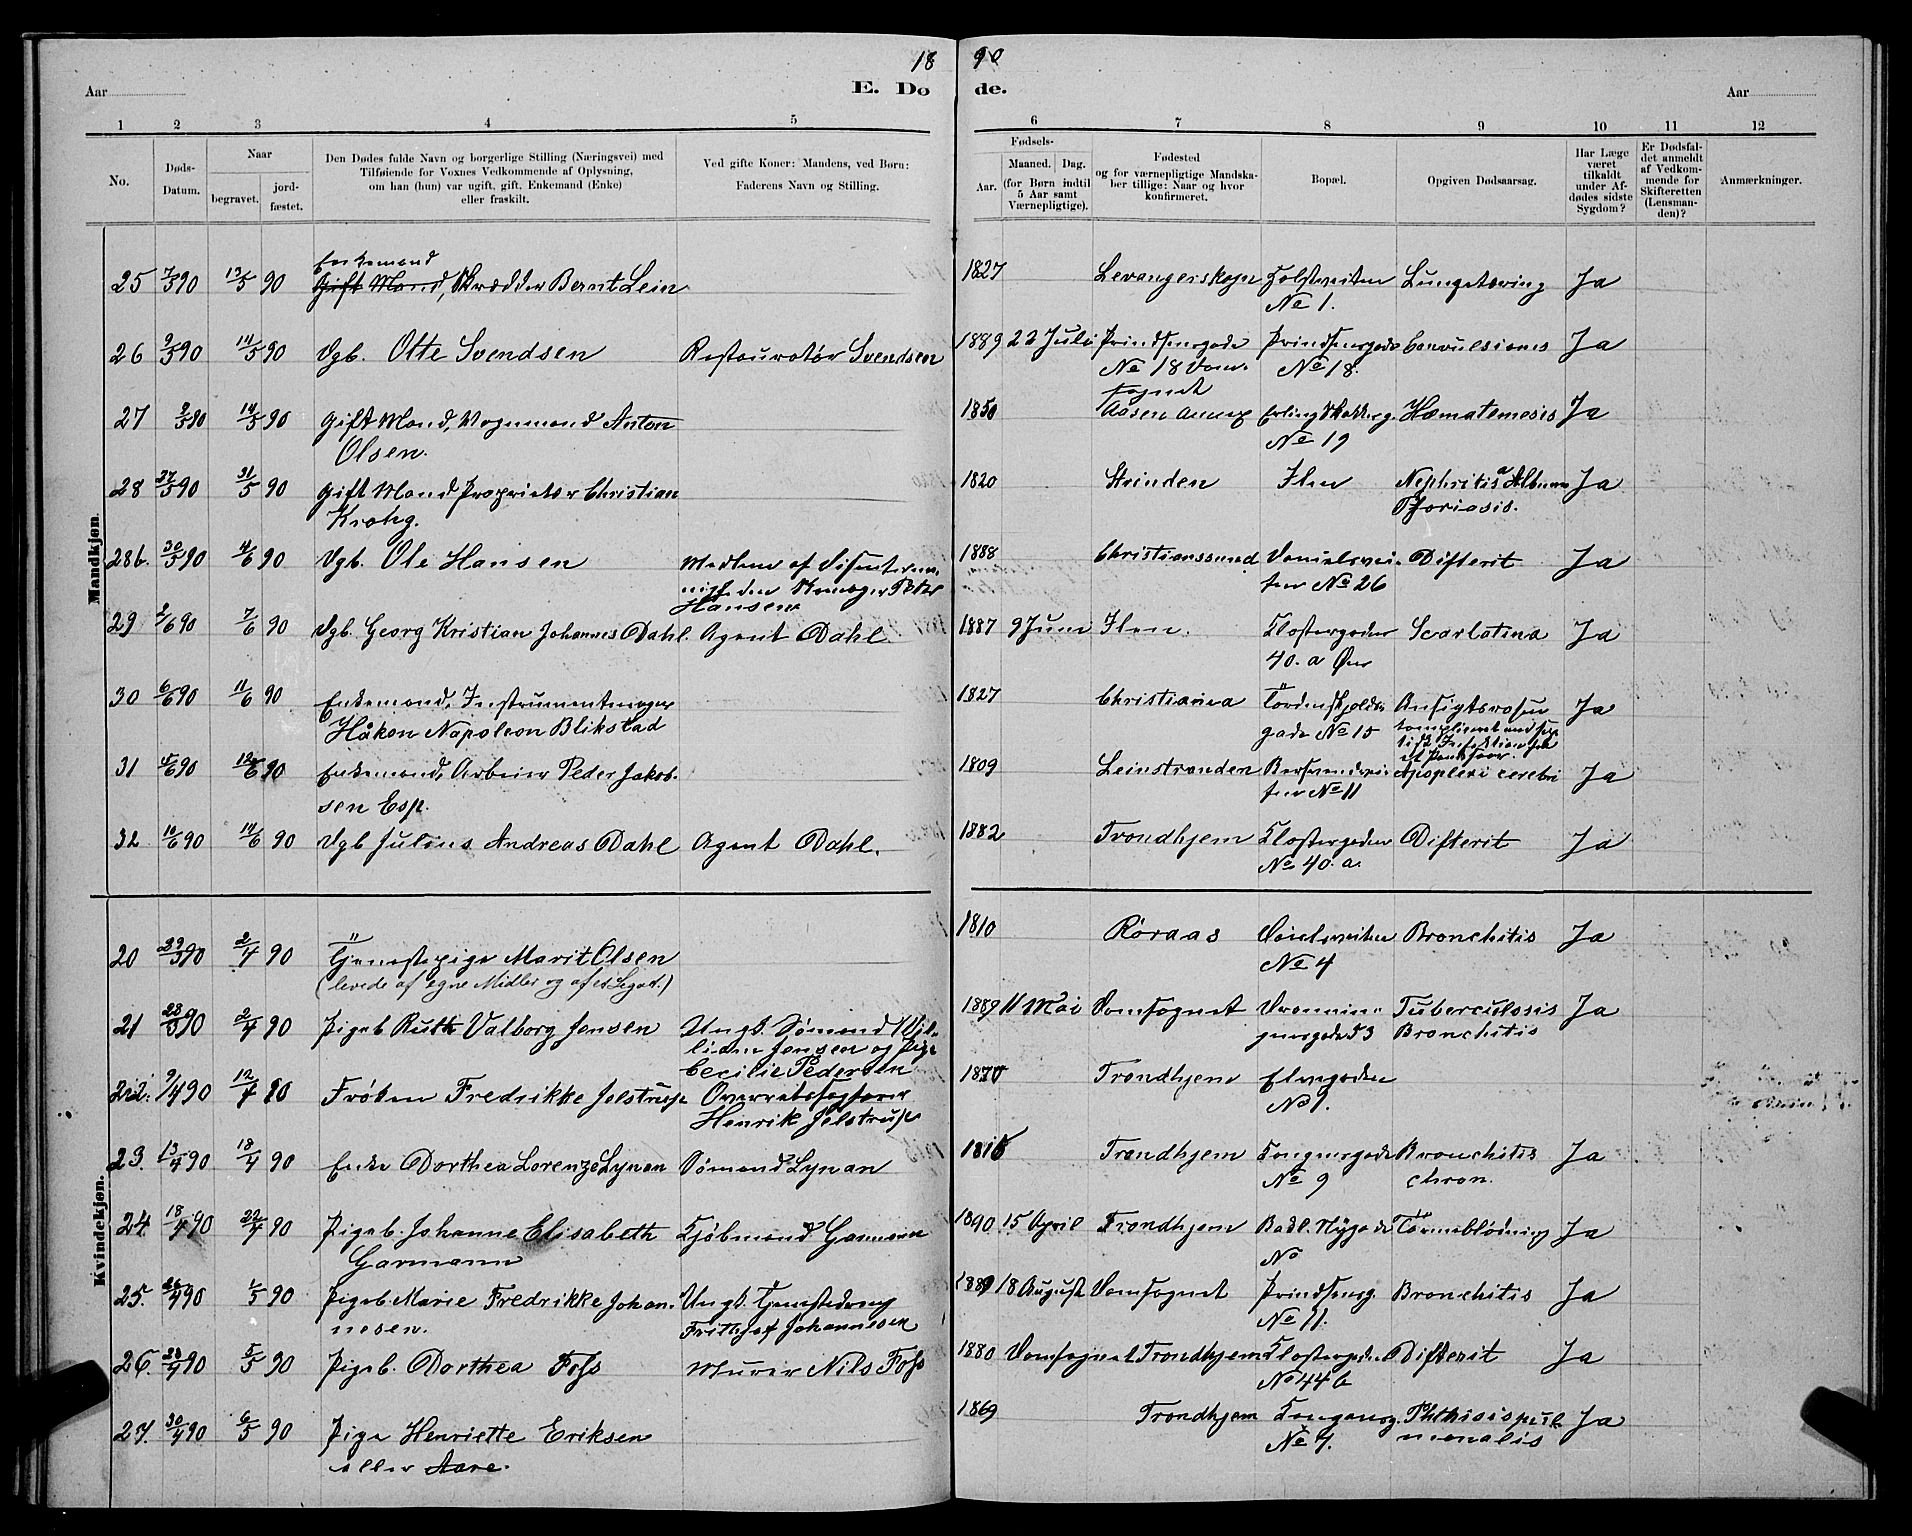 18 90
Aar E. Dø de. Aar
1 2 3 4 5 6 7 8 9 10 11 12
No.
Døds-Datum.
Naar
begravet.
jord-fæstet.
Den Dødes fulde Navn og borgerlige Stilling (Næringsvei) med
Tilføiende for Voxnes Vedkommende af Oplysning,
om han (hun) var ugift, gift, Enkemand (Enke)
eller fraskilt.
Ved gifte Koner: Mandens, ved Børn:
Faderens Navn og Stilling.
Fødsels-
Aar.
Maaned. Dag.
(for Børn indtil
5 Aar samt
Værnepligtige).
Fødested
og for værnepligtige Mandska-
ber tillige: Naar og hvor
konfirmeret.
Bopæl.
Opgiven Dødsaarsag.
Har Læge
været
tilkaldt
under Af-
dødes sidste
Sygdom?
Er Dødsfal-
det anmeldt
af Vedkom-
mende for
Skifteretten
(Lensman-
den)?
Anmærkninger.
Mandkjøn.
Enkemand
25 7/5 90 13/5 90 Gift Mand, Skrædder Bernt Lein 1827 Levangerskogn Lungetæring Ja
No 1.
26 9/5 90 14/5 90 Vgb. Otte Svendsen Restauratør Svendsen 1889 22 Juli Prindsensgade Prindsensgade Convulsiones Ja
No 18 Dom- No 18.
sognet
27 9/5 90 14/5 90 Gift Mand, Vognmand Anton 1850 Aasen Annex Erling Skakkesg. Hæmatemesis Ja
Olsen. No 19
28 27/5 90 31/5 90 Gift Mand Proprietær Christian 1820 Strinden Ilen Nephritis Ja
Krohg. Psoriasis.
28b. 30/5 90 4/6 90 Vgb. Ole Hansen Medlem af Dissenterme- 1888 Christianssund Difterit Ja
nigheden Peter ten No 26
Hansen
29 2/6 90 7/6 90 Vgb. Georg Kristian Johannes Dahl. Agent Dahl 1887 9 Juni Ilen. Klostergaden Scarlatina Ja
40. a
30 6/6 90 11/6 90 Enkemand, Instrumentmager 1827 Christiania Tordenskjolds Ansigtsrosen Ja
Håkon Napoleon Blikstad gade No 15 compliceret med sep-
tisk Infektion
31 4/6 90 12/6 90 Enkemand, Arbeier Peder Jakob- 1809 Leinstranden Apoplexi cerebri Ja
sen Esp. No 11
32 10/6 90 14/6 90 Vgb Julius Andreas Dahl Agent Dahl. 1882 Trondhjem Klostergaden Difterit Ja
No 40. a.
Kvindekjøn.
20 29/3 90 2/4 90 Tjenestepige Marit Olsen 1810 Røraas Bronchitis Ja
(levede af egne Midler og af et Legat.) No 4
21 28/3 90 2/4 90 Pigeb Ruth Valborg Jensen Ungk. Sømand Vil- 1889 11 Mai Domsognet Dronnin- Tuberculosis Ja
liam Jensen og Pige gensgade 53 Bronchitis
Cecilie Pedersen
22. 9/4 90 12/4 90 Frøken Fredrikke Jelstrup Overretssagfører 1870 Trondhjem Elvegaden
Henrik Jelstrup No 1.
23. 13/4 90 18/4 90 Enke Dorthea Lorenze Lynan Sømand Lynan 1816 Trondhjem Kongensgade Bronchitis Ja
No 9 chron.
24. 18/4 90 22/4 90 Pigeb. Johanne Elisabeth Kjøbmand Garmann 1890 15 April Trondhjem Bakl. Nygade Tarmeblødning Ja
Garmann No
25. 26/4 90 1/5 90 Pigeb. Marie Fredrikke Johan- Ungk. Tjenestedreng 1889 18 August Domsognet Prindsensg. Bronchitis Ja
nesen. Frithjof Johannesen No 11.
26. 28/4 90 5/5 90 Pigeb. Dorthea Foss Murer Nils Foss 1880 Domsognet Trondhjem Klostergaden Difterit Ja
No 44 b
27. 30/4 90 6/5 90 Pige Henriette Eriksen 1869 Trondhjem Kongensg. Phthisis pul- Ja
eller Aare. No 4. monalis